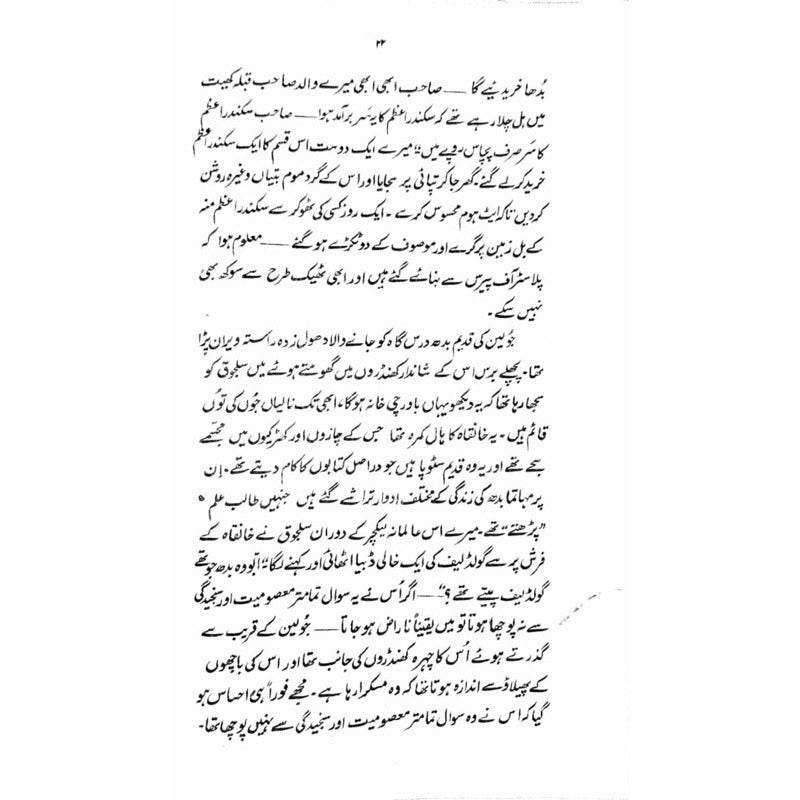 ۲۲
بُدھا خریدئیے گا —— صاحب ابھی ابھی میرے والد صاحب قبلہ کھیت
میں ہل چلا رہے تھے کہ سکندر اعظم کا یہ سَر برآمد ہوا —— صاحب سکندر اعظم
کا سَر صرف پچاس روپے میں“ میرے ایک دوست اس قسم کا ایک سکندر اعظم
خرید کر لے گئے۔ گھر جا کر تپائی پر سجایا اور اس کے گرد موم بتیاں وغیرہ روشن
کر دیں تاکہ ایٹ ہوم محسوس کرے۔ ایک روز کسی کی ٹھوکر سے سکندر اعظم منہ
کے بل زمین پر گرے اور موصوف کے دو ٹکڑے ہو گئے —— معلوم ہوا کہ
پلاسٹر آف پیرس سے بنائے گئے ہیں اور ابھی ٹھیک طرح سے سوکھ بھی
نہیں سکے۔
جُولین کی قدیم بدھ درس گاہ کو جانے والا دھول زدہ راستہ ویران پڑا
تھا۔ پچھلے برس اس کے شاندار کھنڈروں میں گھومتے ہوئے میں سلجوق کو
سمجھا رہا تھا کہ یہ دیکھو یہاں باورچی خانہ ہو گا، ابھی تک نالیاں جُوں کی توُں
قائم ہیں۔ یہ خانقاہ کا ہال کمرہ تھا جس کے چاروں اور کھڑکیوں میں مجسمے
سجے تھے اور یہ وہ قدیم سٹوپا ہیں جو دراصل کتابوں کا کام دیتے تھے۔ اِن
پر مہاتما بدھ کی زندگی کے مختلف ادوار تراشے گئے ہیں جنہیں طالب علم
”پڑھتے“ تھے۔ میرے اس عالمانہ لیکچر کے دوران سلجوق نے خانقاہ کے
فرش پر سے گولڈ لیف کی ایک خالی ڈبیا اٹھائی اور کہنے لگا ”ابّو وہ بدھ جو تھے
گولڈ لیف پیتے تھے؟“ —— اگر اُس نے یہ سوال تمام تر معصومیت اور سنجیدگی
سے نہ پوچھا ہوتا تو میں یقیناً ناراض ہو جاتا —— جُولین کے قریب سے
گذرتے ہوئے اُس کا چہرہ کھنڈروں کی جانب تھا اور اس کی باچھوں
کے پھیلاؤ سے اندازہ ہوتا تھا کہ وہ مسکرا رہا ہے۔ مجھے فوراً ہی احساس ہو
گیا کہ اس نے وہ سوال تمام تر معصومیت اور سنجیدگی سے نہیں پوچھا تھا۔